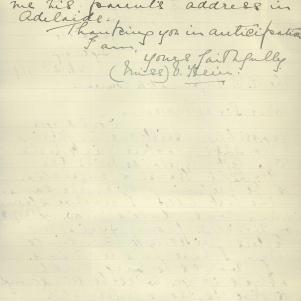 me his parents address in
Adelaide.
Thanking you in anticipation
I am,
Yours faithfully
(Miss)